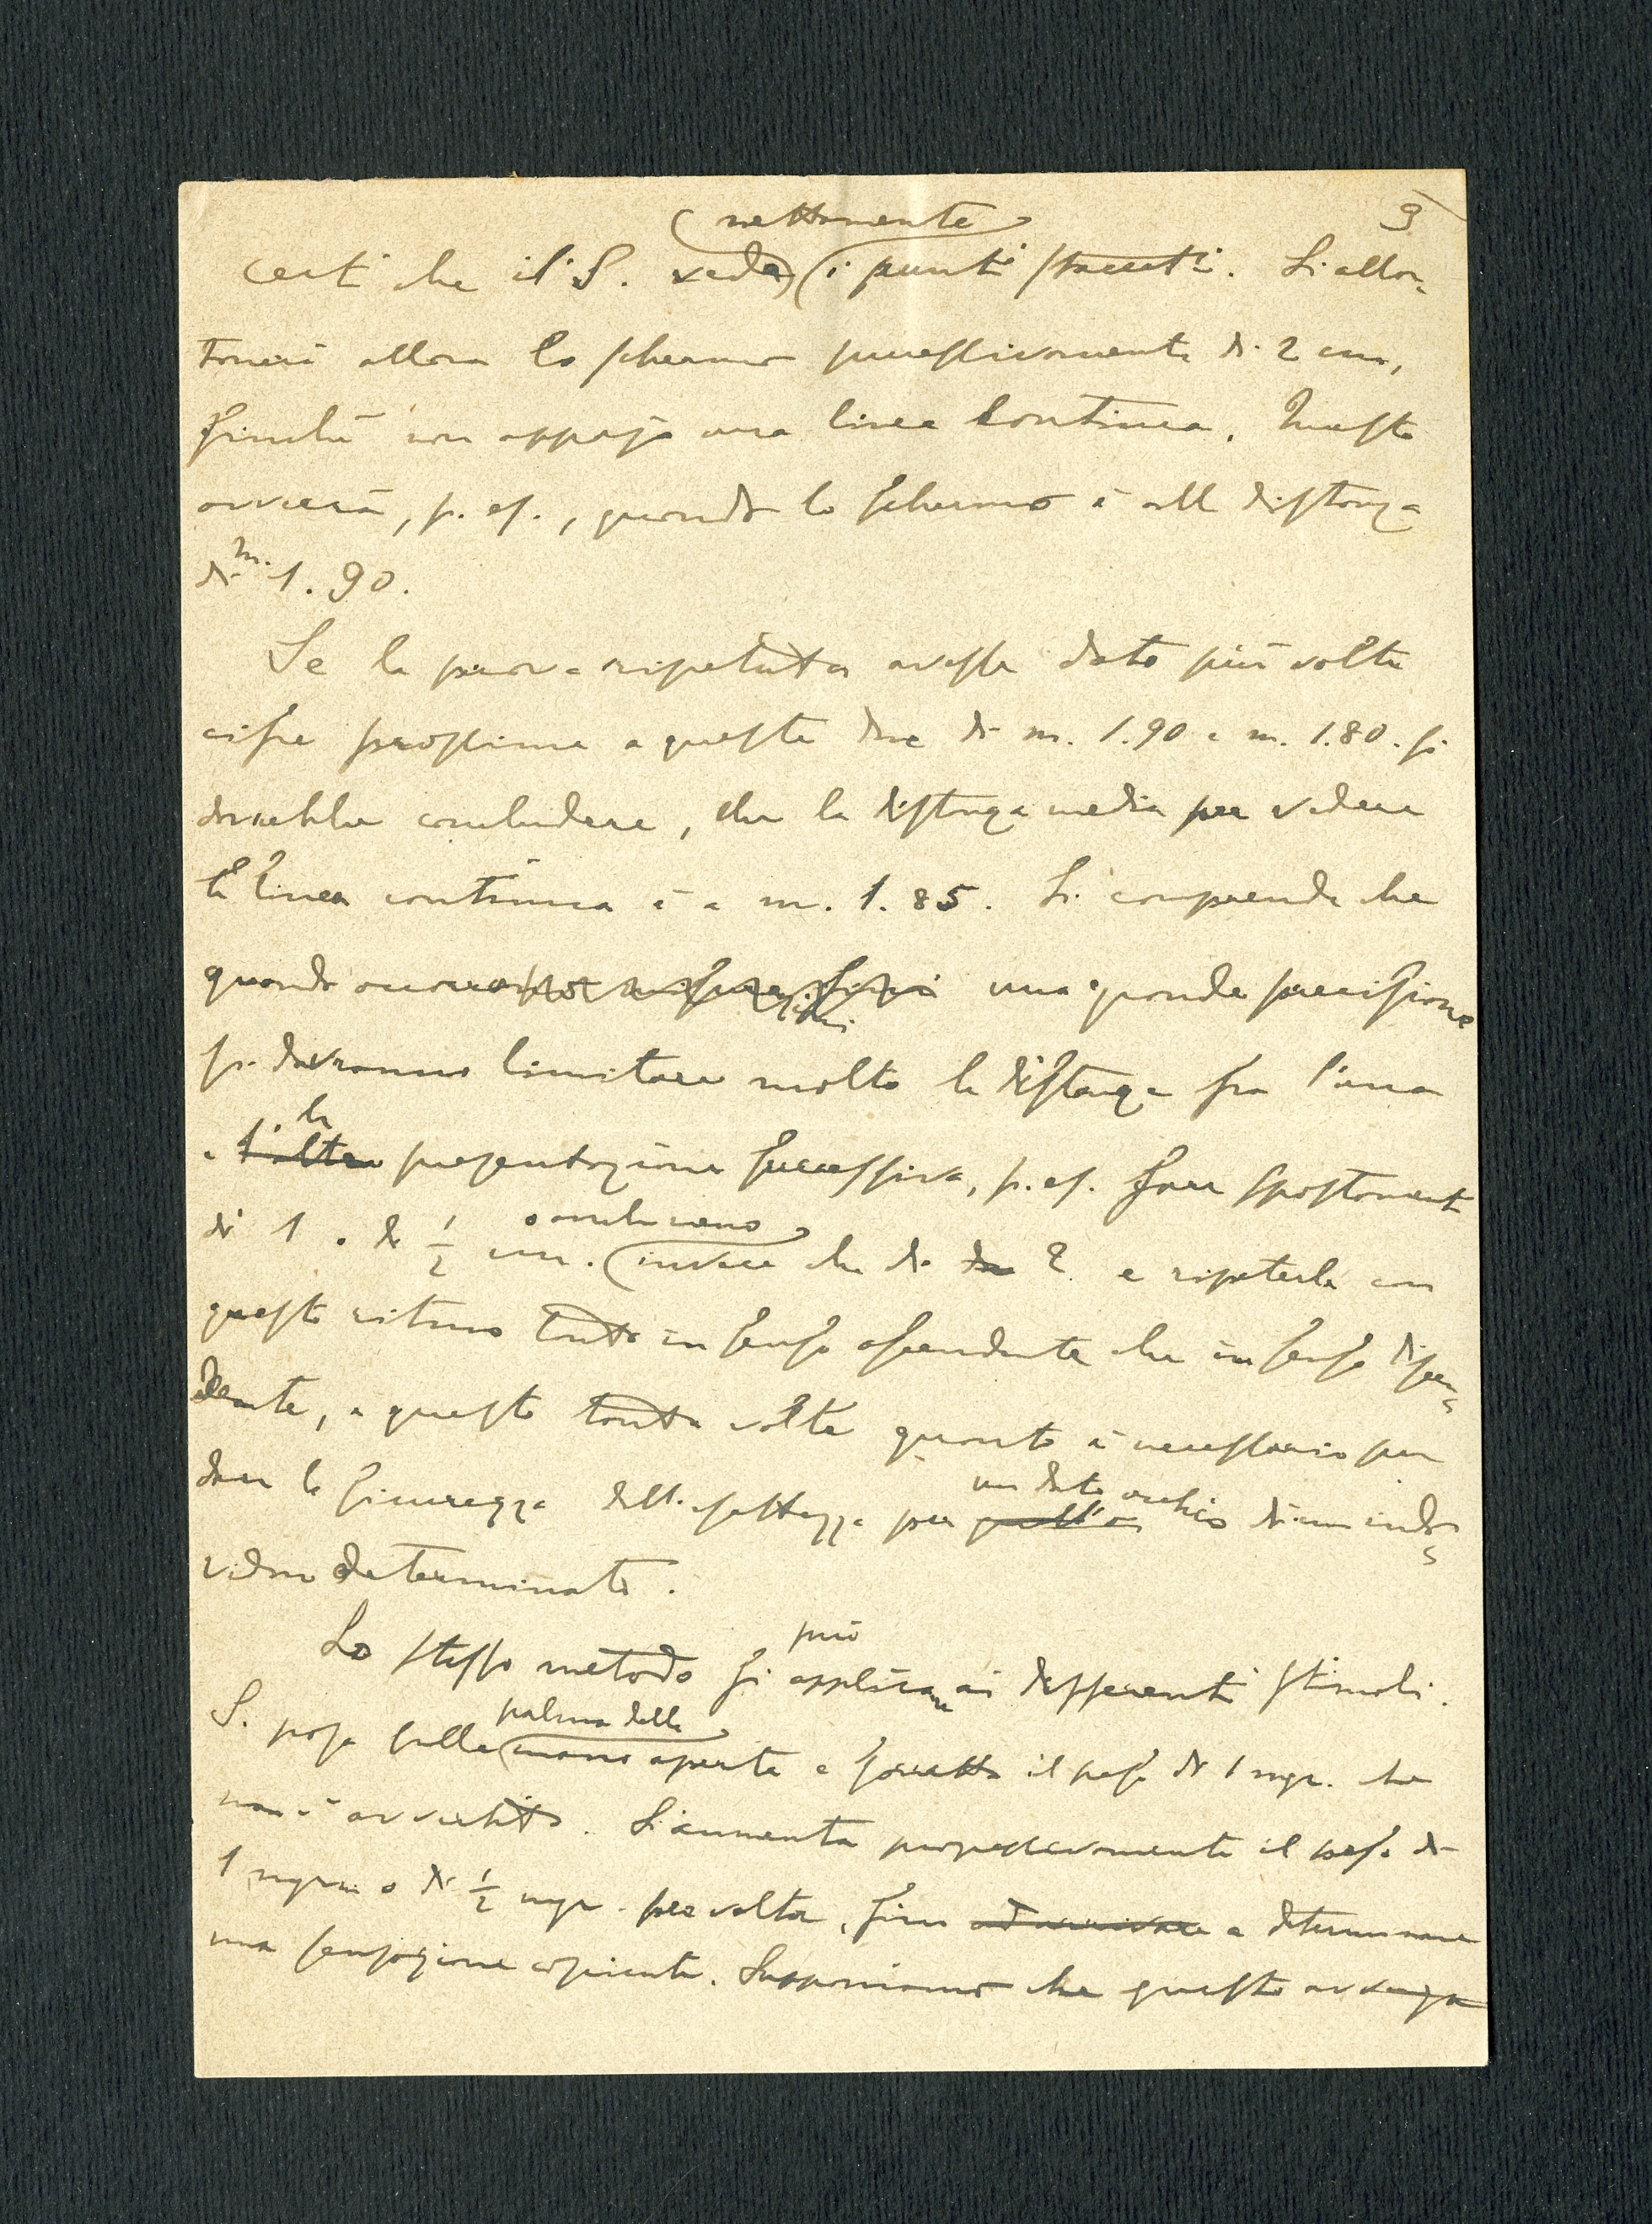 3
certi che il S. veda nettamente i punti staccati. Si allon-
tanerà allora lo schermo successivamente di 2 cm,
finché non appaja una linea continua. Questo
avverrà, p. es., quando lo schermo è alla distanza
di m. 1.90.
Se la prova ripetuta avesse dato più volte
cifre prossime a queste due di m. 1.90 e m. 1.80. si
dovrebbe concludere, che la distanza media per vedere
la linea continua è a m. 1.85. Si comprende che
quando occorre una grande precisione
si dovranno limitare molto la distanza fra l'una
e l'altra la presentazione successiva, p. es. fare spostamenti
di 1 o di 1/2 cm. o anche meno invece che di due 2. e ripeterle con
questo ritmo tanto in senso ascendente che in senso discen-
dente, e questo tante volte quanto è necessario per
dare la sicurezza dell'esattezza per un dato occhio di un indi-
viduo determinato.
Lo stesso metodo si può applicare ai differenti stimoli.
S. posa sulla palma della mano aperta e il peso di 1 mgr. che
non è avvertito. Si aumenta progressivamente il peso di
1 mgrm o di 1/2 mgr. per volta, fino ad arrivare a determinare
una sensazione cosciente. Supponiamo che questo avvenga